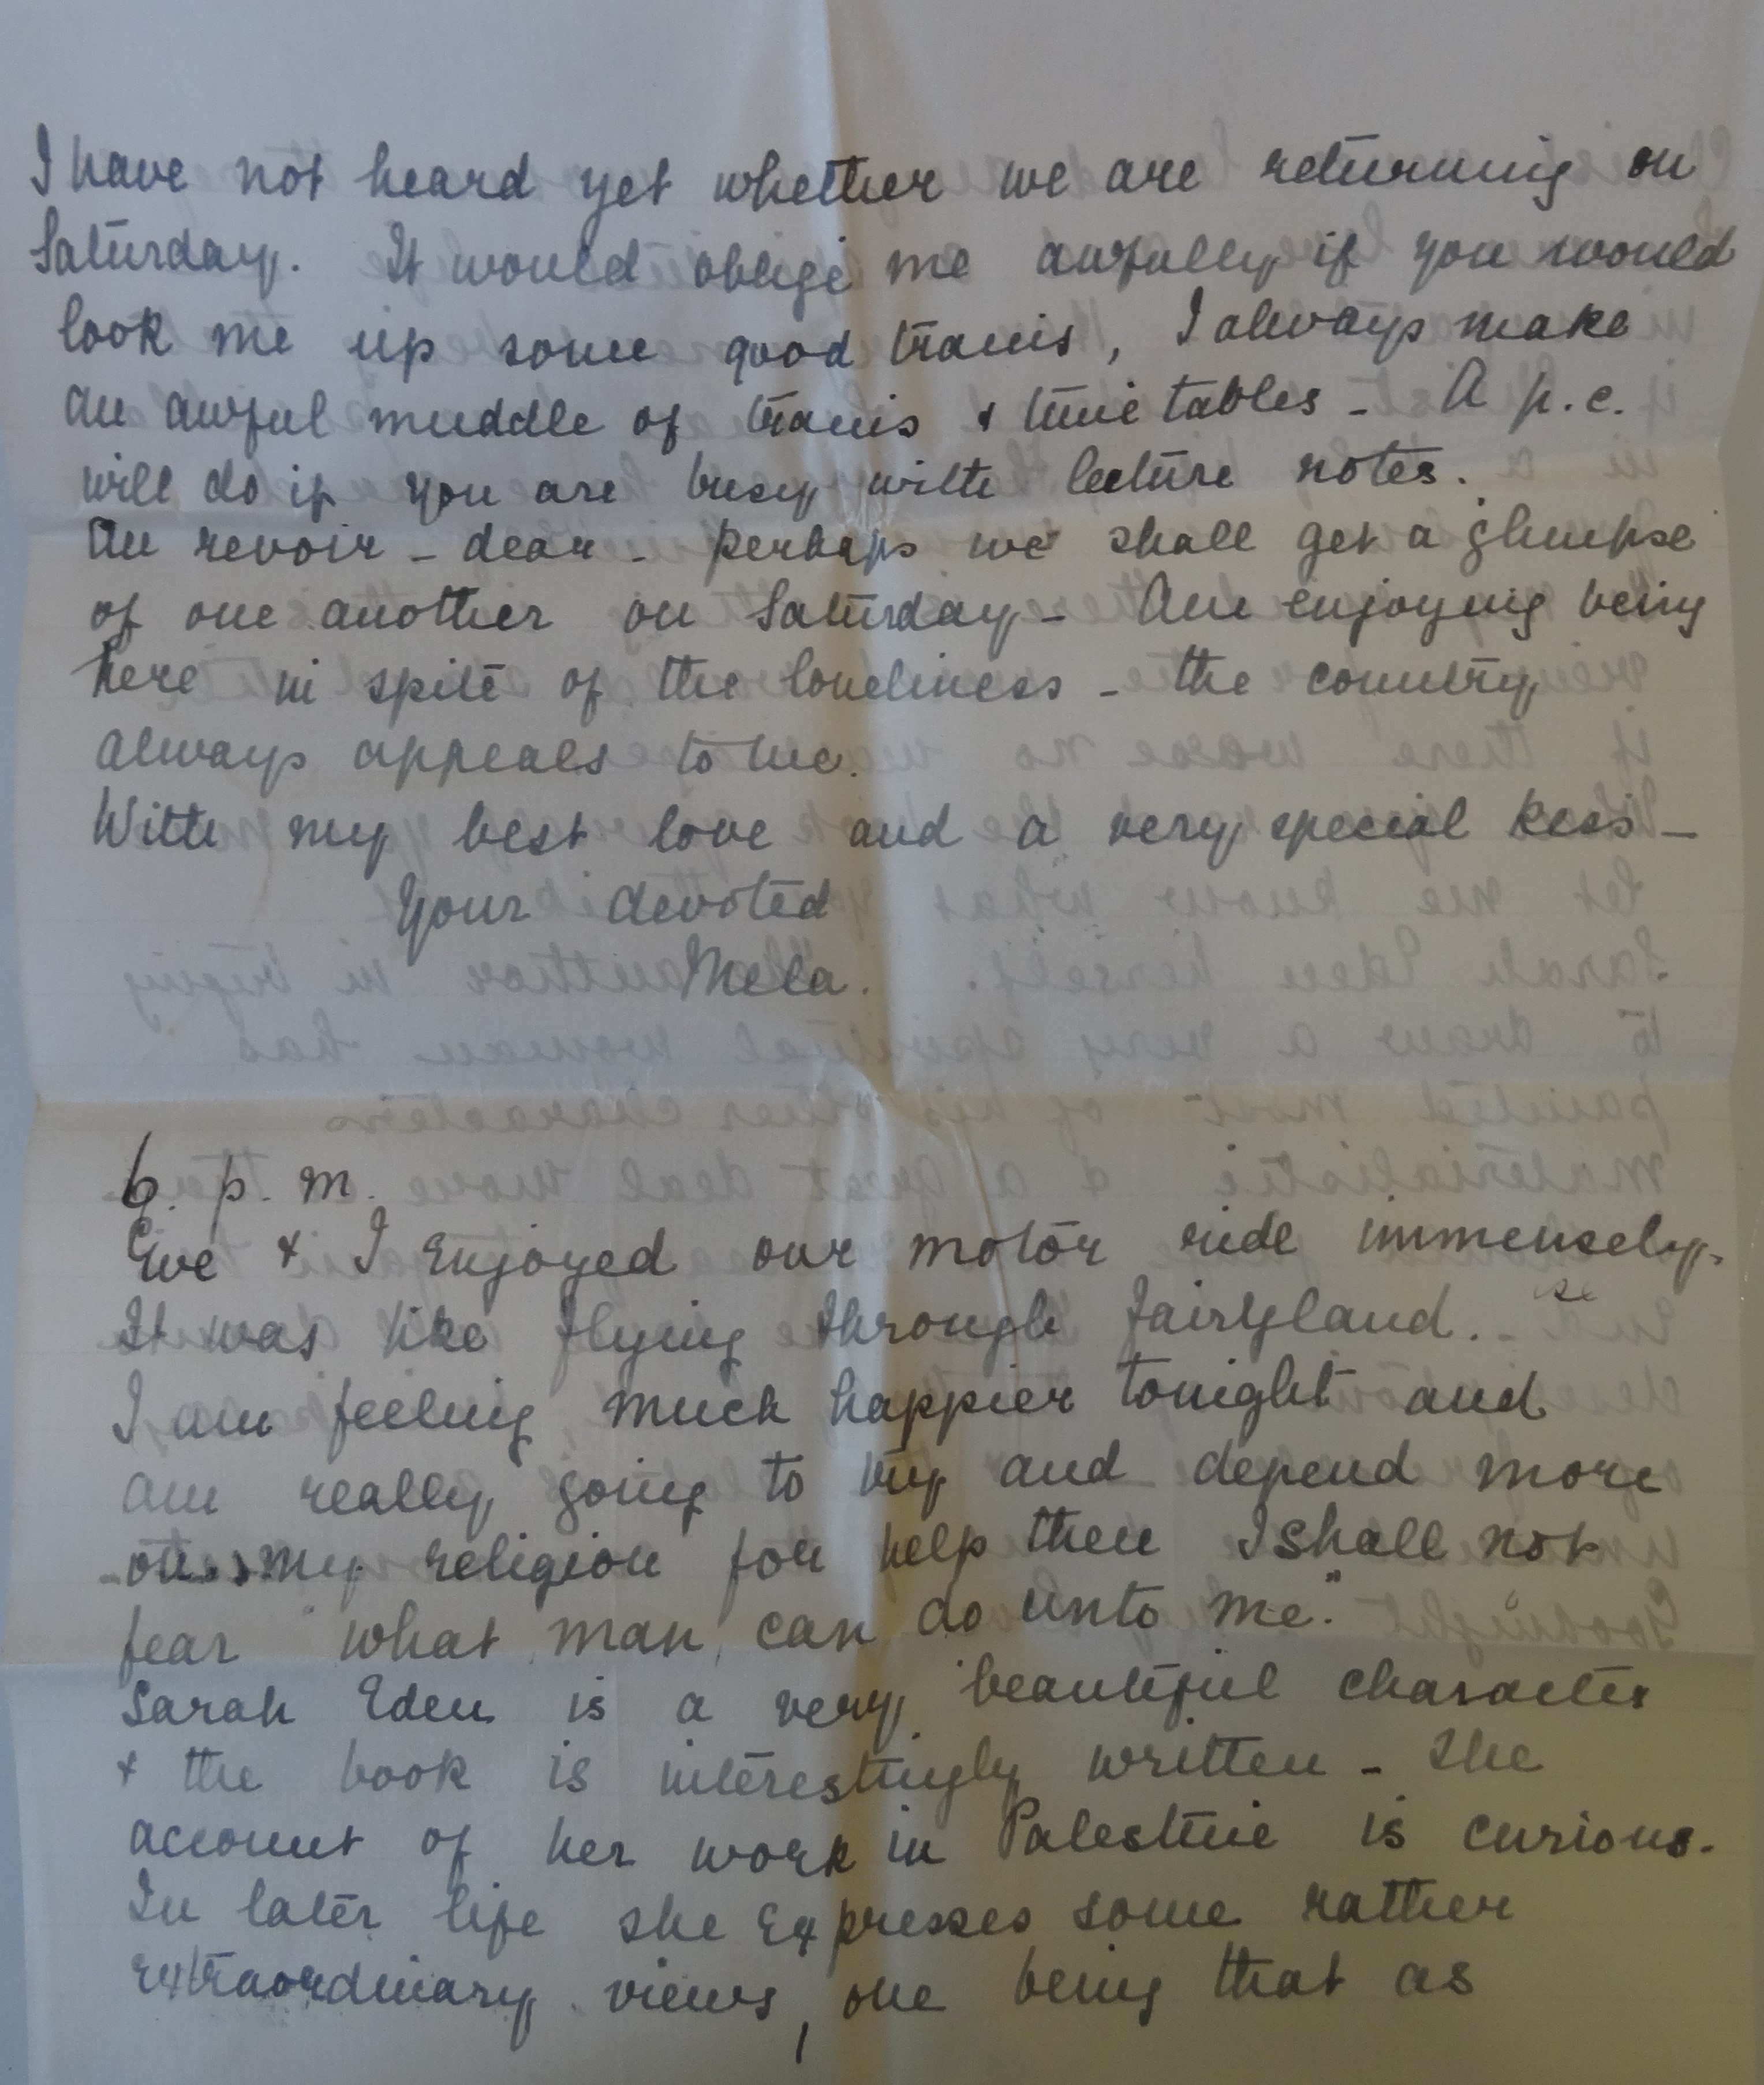 I have not heard yet whether we are returning on
Saturday. It would oblige me awfully if you would
look me up some good trains, I always make
an awful muddle of trains & time tables - A p.c.
will do if you are busy with lecture notes.
Au revoir - dear - perhaps we shall get a glimpse
of one another on Saturday - Am enjoying being
here in spite of the loneliness - the country
always appeals to me.
With my best love and a very special kiss -
Your devoted
Mela.
6. p. m.
Eve & I enjoyed our motor ride immensely.
It was like flying through fairyland.
I am feeling much happier tonight and
am really going to try and depend more
on my religion for help then I shall not
fear "what man can do unto me."
Sarah Eden is a very beautiful character
& the book is interestingly written - the
account of her work in Palestine is curious.
In later life she expresses some rather
extraordinary views, one being that as